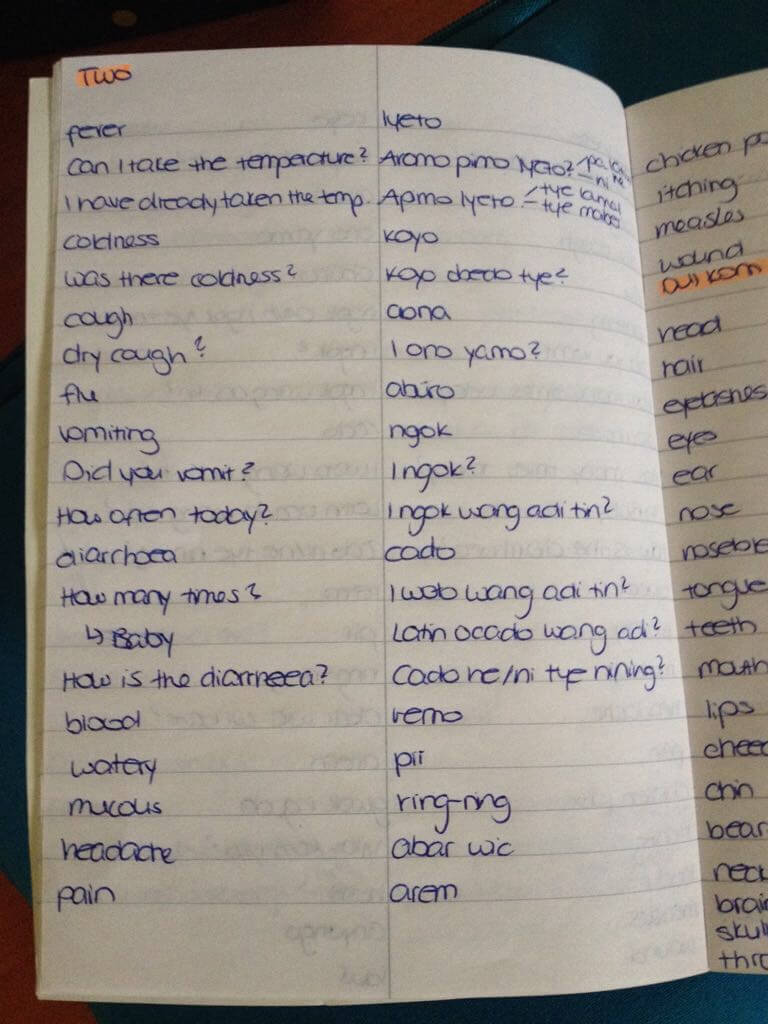 TWO
fever lyeto
Can I take the temperature? Aromo pimo lyeto?
I have already taken the temp. Apimo lyeto.
coldness koyo
was there coldness? koyo obedo tye?
cough aona
dry cough? I ono yamo?
flu abiro
vomiting ngok
Did you vomit? I ngok?
How often today? I ngok wang adi tin?
diarrhoea cado
How many times? I wob wang adi tin?
↳ Baby Latin ocado wang adi?
How is the diarrheea? Cado ne/ni tye nining?
blood remo
watery pii
mucous ring-ring
headache abar wic
pain arem
chicken
itching
measles
wound
head
hair
eyelashes
eyes
ear
nose
tongue
teeth
mouth
lips
chin